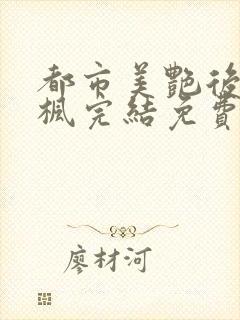 都市美艷後
楓完結免費
廖材河